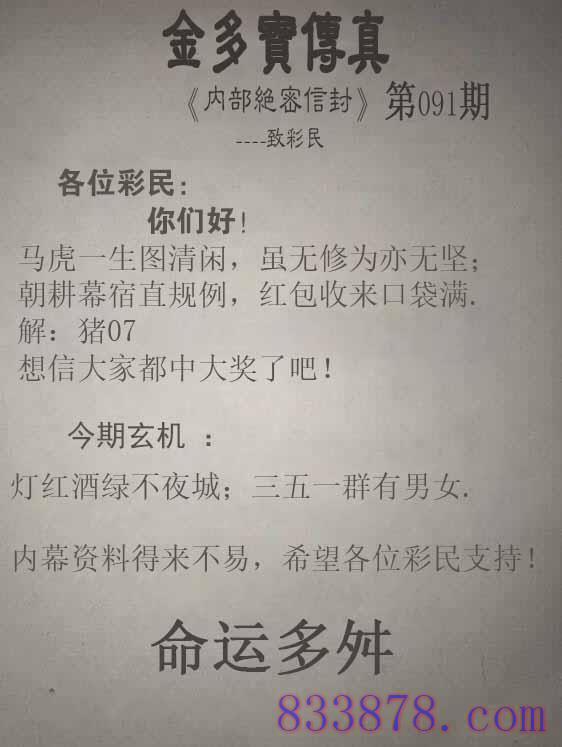 金多寶傳真
《内部絶密信封》第091期
----致彩民
各位彩民:
你们好!
马虎一生图清闲，虽无修为亦无坚;
朝耕幕宿直规例，红包收来口袋满.
解：猪07
想信大家都中大奖了吧!
今期玄机 :
灯红酒绿不夜城；三五一群有男女.
内幕资料得来不易，希望各位彩民支持!
命运多舛
833878.com